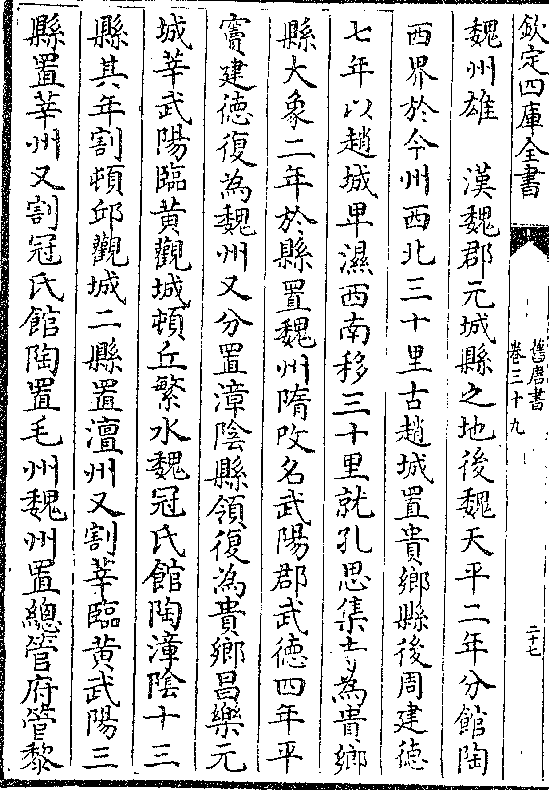 欽定四庫全書
舊唐書
卷三十九
二十七
魏州雄　漢魏郡元城縣之地後魏天平二年分館陶
西界於今州西北三十里古趙城置貴鄉縣後周建德
七年以趙城卑濕西南移三十里就孔思集寺為貴鄉
縣大象二年於縣置魏州隋改名武陽郡武德四年平
竇建德復為魏州又分置漳陰縣領復為貴鄉昌樂元
城莘武陽臨黃觀城頓丘繁水魏冠氏館陶漳陰十三
縣其年割頓邱觀城二縣置澶州又割莘臨黄武陽三
縣置莘州又割冠氏館陶置毛州魏州置總管府管黎